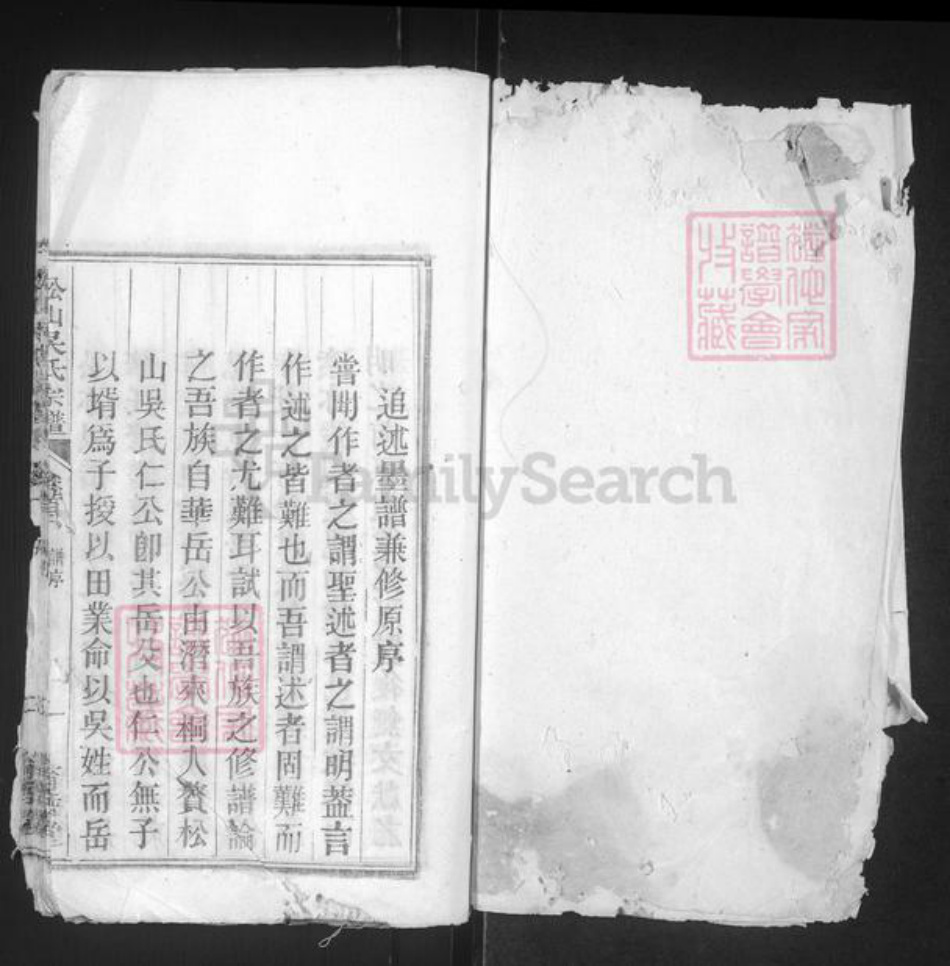 追述墨譜兼修原序
嘗聞作者之謂聖述者之謂明葢言
作述之皆難也而吾謂述者固難而
作者之尤難耳試以吾族之修譜論
之吾族自華岳公由潛來桐入贅松
山吳氏仁公卽其岳父也仁公無子
以壻爲子授以田業命以吳姓而岳
松山吳氏宗譜
卷首
譜序
一
譜學會
收藏
FamilySearch